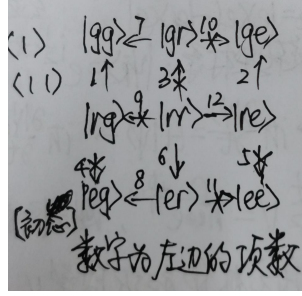 (1) |gg> ←7 |gr> 10 |ge>
(11) 1↑ 3 2↑
|rg> 9 |rr> 12→ |re>
4 6↓ 5
[初态] |eg> ←8 |er> 11 |ee>
数字为左边的项数